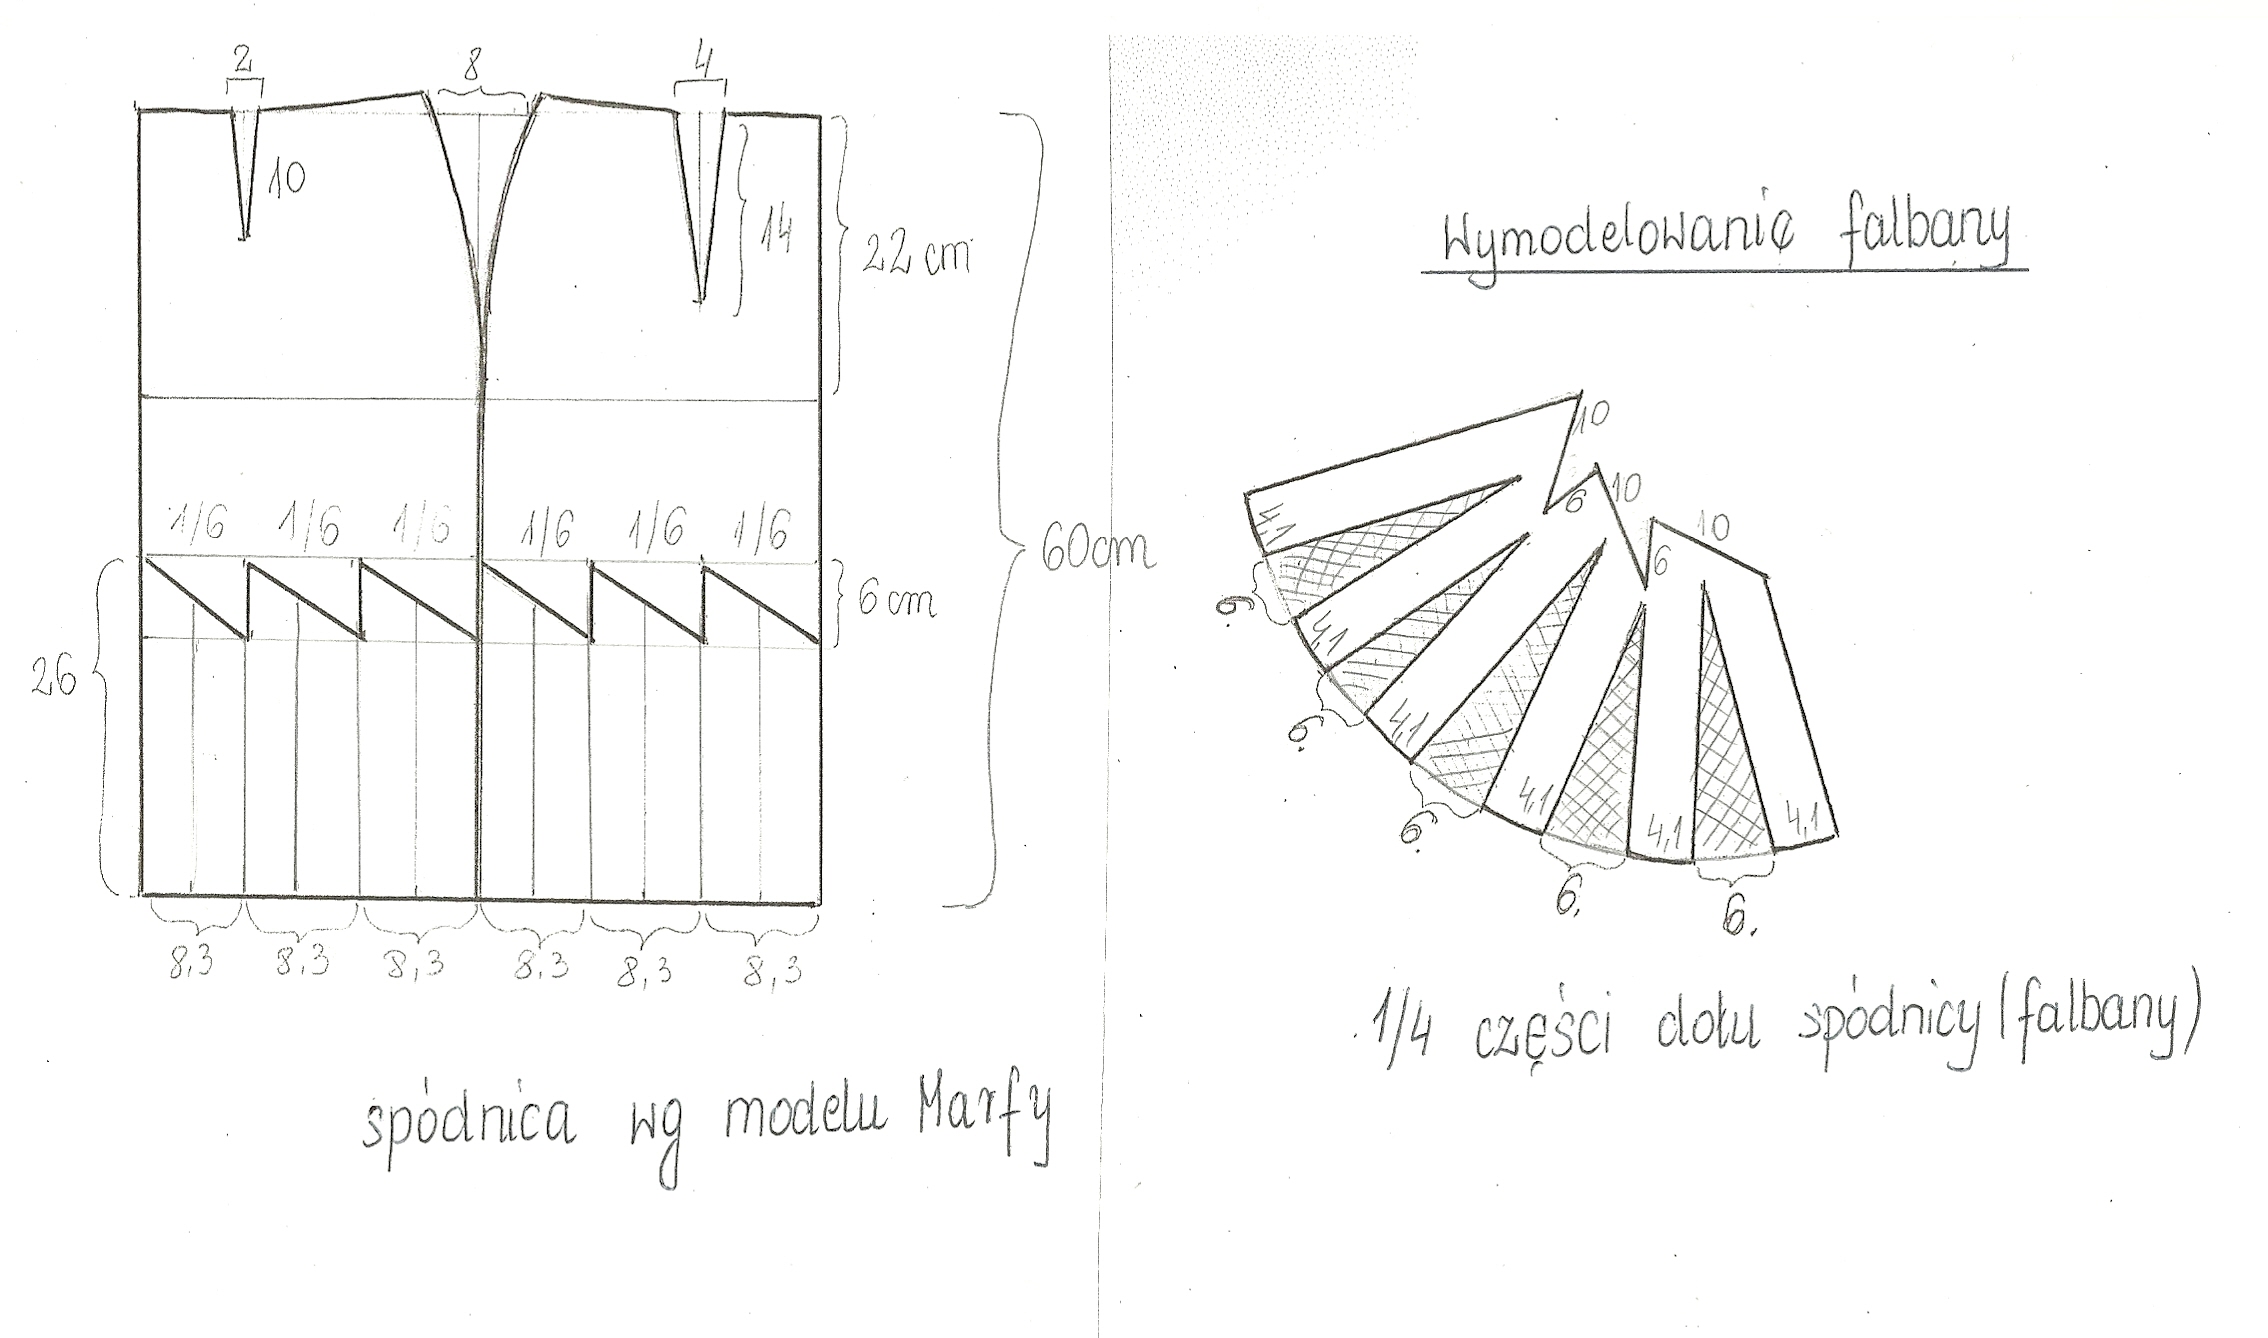 2 8 4
10
14
22 cm
60cm
1/6 1/6 1/6 1/6 1/6 1/6
6 cm
26
8,3 8,3 8,3 8,3 8,3 8,3
spódnica wg modelu Marfy
Wymodelowanie falbany
10
6
10
6
10
4,1 4,1 4,1 4,1 4,1 4,1
6. 6. 6. 6. 6.
1/4 części dołu spódnicy (falbany)